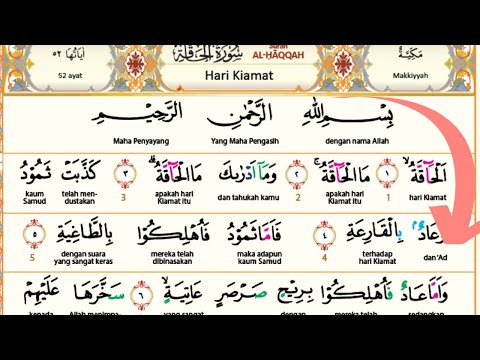 اٰيَاتُهَا ٥٢ سُوْرَةُ الْحَاۤقَّةِ Surah مَكِّيَّةٌ
AL-HĀQQAH
52 ayat Hari Kiamat Makkiyyah
بِسْمِ اللّٰهِ الرَّحْمٰنِ الرَّحِيْمِ
dengan nama Allah Yang Maha Pengasih Maha Penyayang
اَلْحَاۤقَّةُۙ ١ مَا الْحَاۤقَّةُۚ ٢ وَمَآ اَدْرٰىكَ مَا الْحَاۤقَّةُۗ ٣ كَذَّبَتْ ثَمُوْدُ
hari Kiamat 1 apakah hari Kiamat itu 2 dan tahukah kamu apakah hari Kiamat itu 3 telah men-dustakan kaum Samud
وَعَادٌۢ بِالْقَارِعَةِ ٤ فَاَمَّا ثَمُوْدُ فَاُهْلِكُوْا بِالطَّاغِيَةِ ٥
dan 'Ad terhadap hari Kiamat 4 maka adapun kaum Samud mereka telah dibinasakan dengan suara yang sangat keras 5
وَاَمَّا عَادٌ فَاُهْلِكُوْا بِرِيْحٍ صَرْصَرٍ عَاتِيَةٍۙ ٦ سَخَّرَهَا عَلَيْهِمْ
sedangkan mereka telah dengan yang sangat Allah menimpa kepada